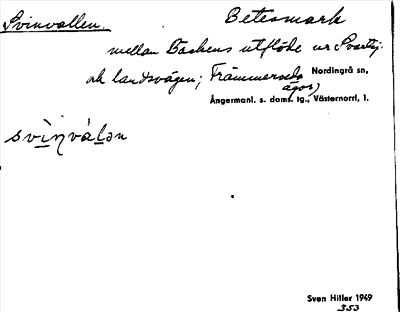 Svinvallen. Betesmark
mellan Bäckens utflöde ur Svartsj.
och landsvägen; Främmerseds Nordingrå sn,
ägor)
Ångermanl. s. doms. tg., Västernorrl, l.
svìnvàlən
Sven Hiller 1949
353